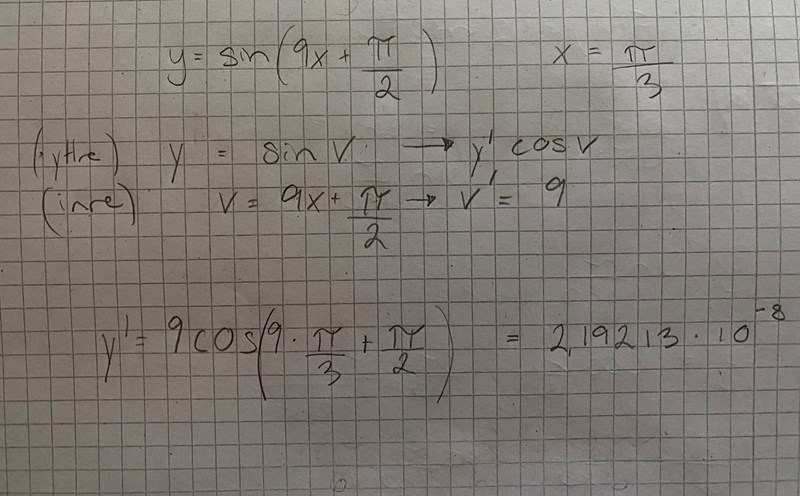 y = sin(9x + π/2) x = π/3
(yttre) y = sin v → y' cos v
(inre) v = 9x + π/2 → v' = 9
y' = 9 cos(9 · π/3 + π/2) = 2,19213 · 10^-8